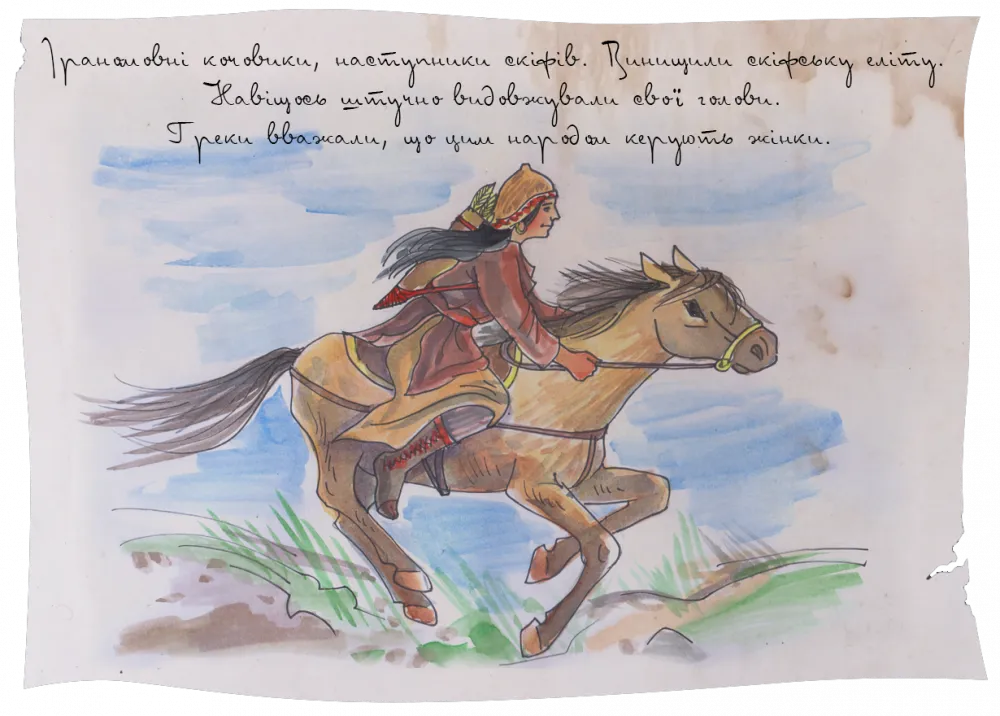 Іраномовні кочовики, наступники скіфів. Винищили скіфську еліту.
Навіщось штучно видовжували свої голови.
Греки вважали, що цим народом керують жінки.